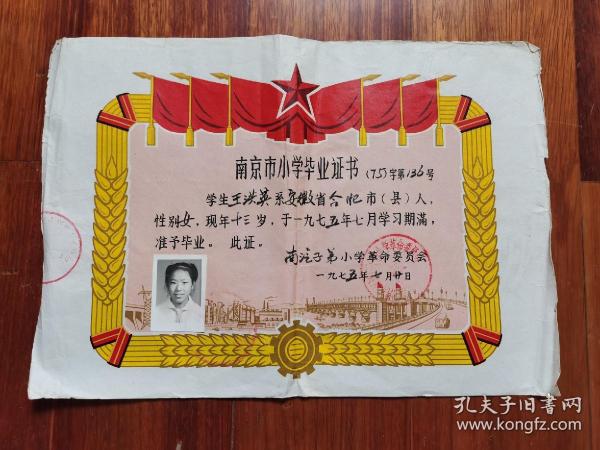 南京市小学毕业证书 (75)字第136号
学生王洪英系安徽省合肥市(县)人,
性别女,现年十三岁,于一九七五年七月学习期满,
准予毕业。 此证。
南汽子弟小学革命委员会
一九七五年七月廿日
孔夫子旧书网
www.kongfz.com